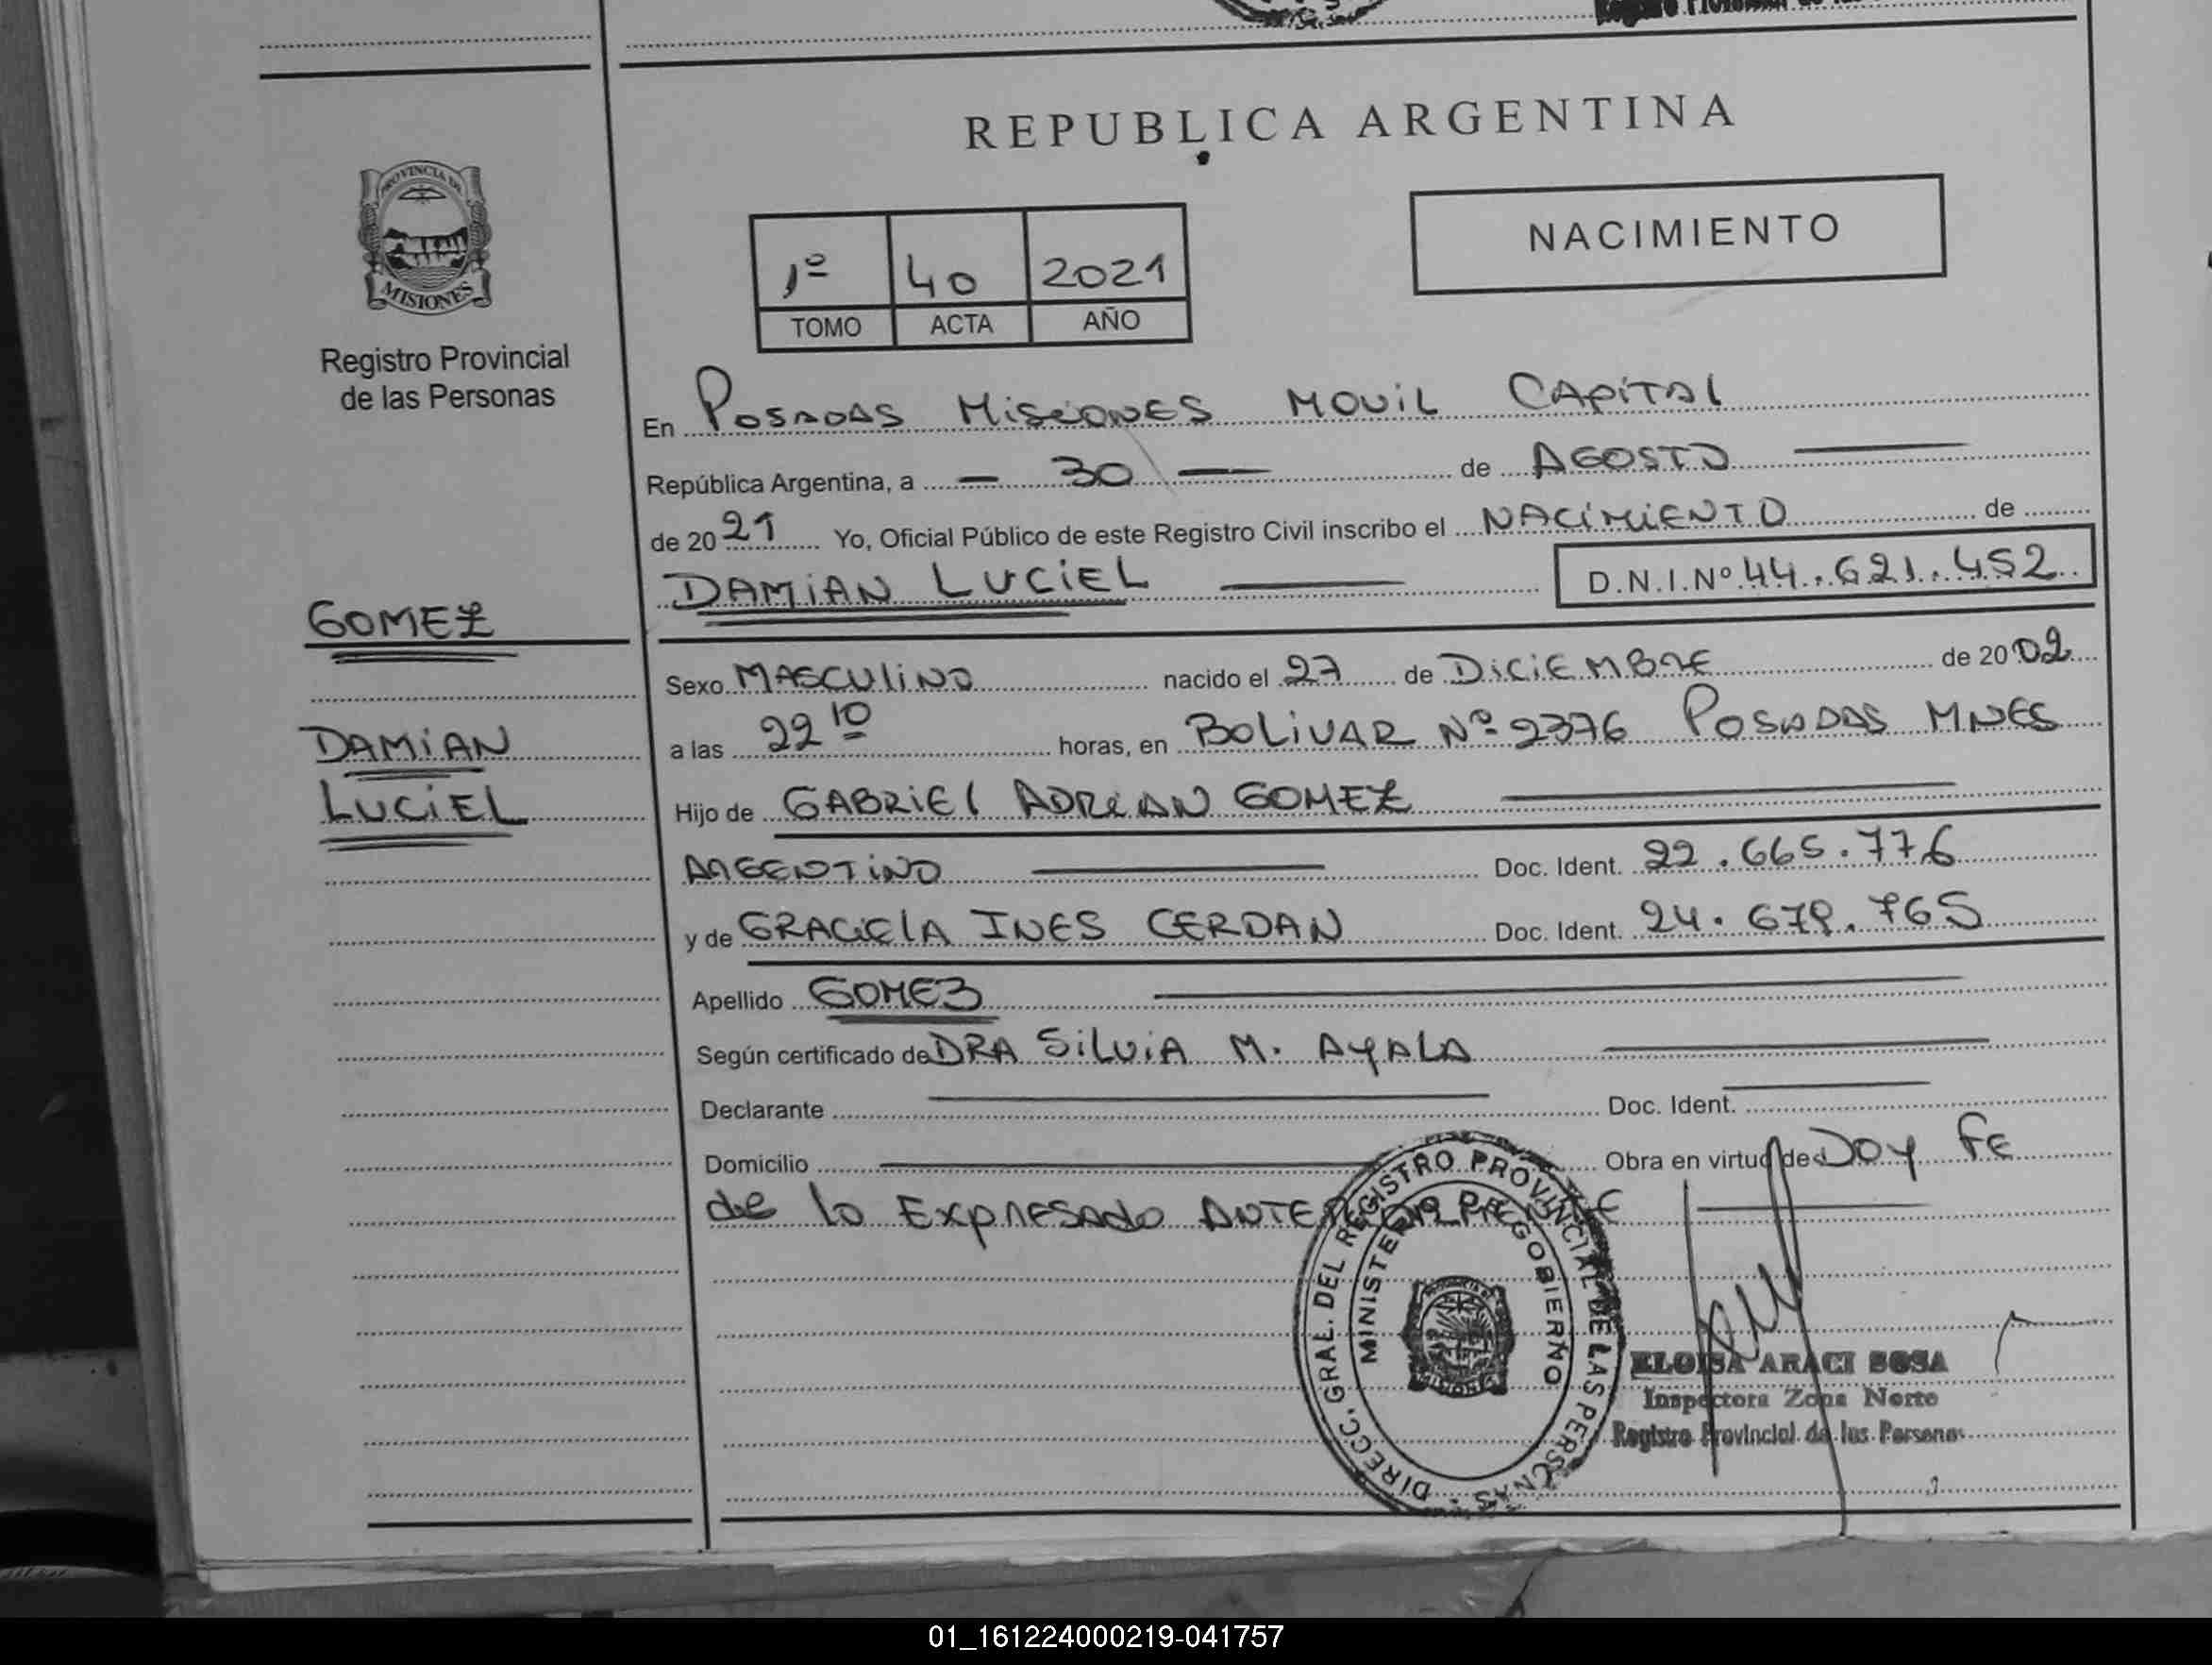 REPUBLICA ARGENTINA
PROVINCIA DE
MISIONES
Registro Provincial
de las Personas
NACIMIENTO
1º 40 2021
TOMO ACTA AÑO
En POSADAS MISIONES MOVIL CAPITAL
República Argentina, a - 30 - de AGOSTO
de 2021 Yo, Oficial Público de este Registro Civil inscribo el NACIMIENTO de
DAMIAN LUCIEL D.N.I.Nº 44.621.452
GOMEZ
DAMIAN
LUCIEL
Sexo MASCULINO nacido el 27 de DICIEMBRE de 2002
a las 22 10 horas, en BOLIVAR Nº 2376 POSADAS MNES
Hijo de GABRIEL ADRIAN GOMEZ
ARGENTINO Doc. Ident. 22.665.776
y de GRACIELA INES CERDAN Doc. Ident. 24.679.765
Apellido GOMEZ
Según certificado de DRA SILVIA M. AYALA
Declarante Doc. Ident.
Domicilio Obra en virtud de DOY FE
de lo EXPRESADO
DIRECC. GRAL. DEL REGISTRO PROVINCIAL DE LAS PERSONAS
MINISTERIO DE GOBIERNO
ELOISA ARACI SOSA
Inspectora Zona Norte
Registro Provincial de las Personas
01_161224000219-041757